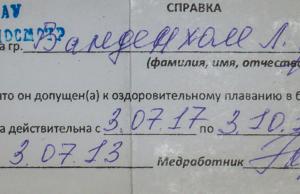 АУ СПРАВКА
ДОСМОТР
а гр. Ванденхолм Л.
(фамилия, имя, отчеств
что он допущен(а) к оздоровительному плаванию в б
а действительна с 3.07.17 по 3.10.
3.07.13 Медработник